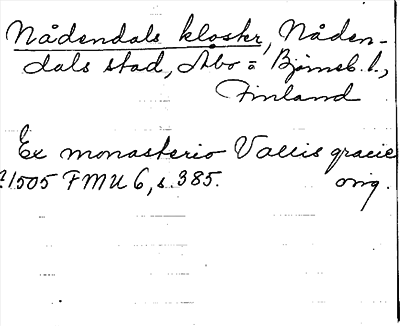 Nådendals kloster, Nåden-
dals stad, Åbo = Björneb. l.,
Finland
Ex monasterio Vallis gracie
1505 FMU 6, s. 385. orig.